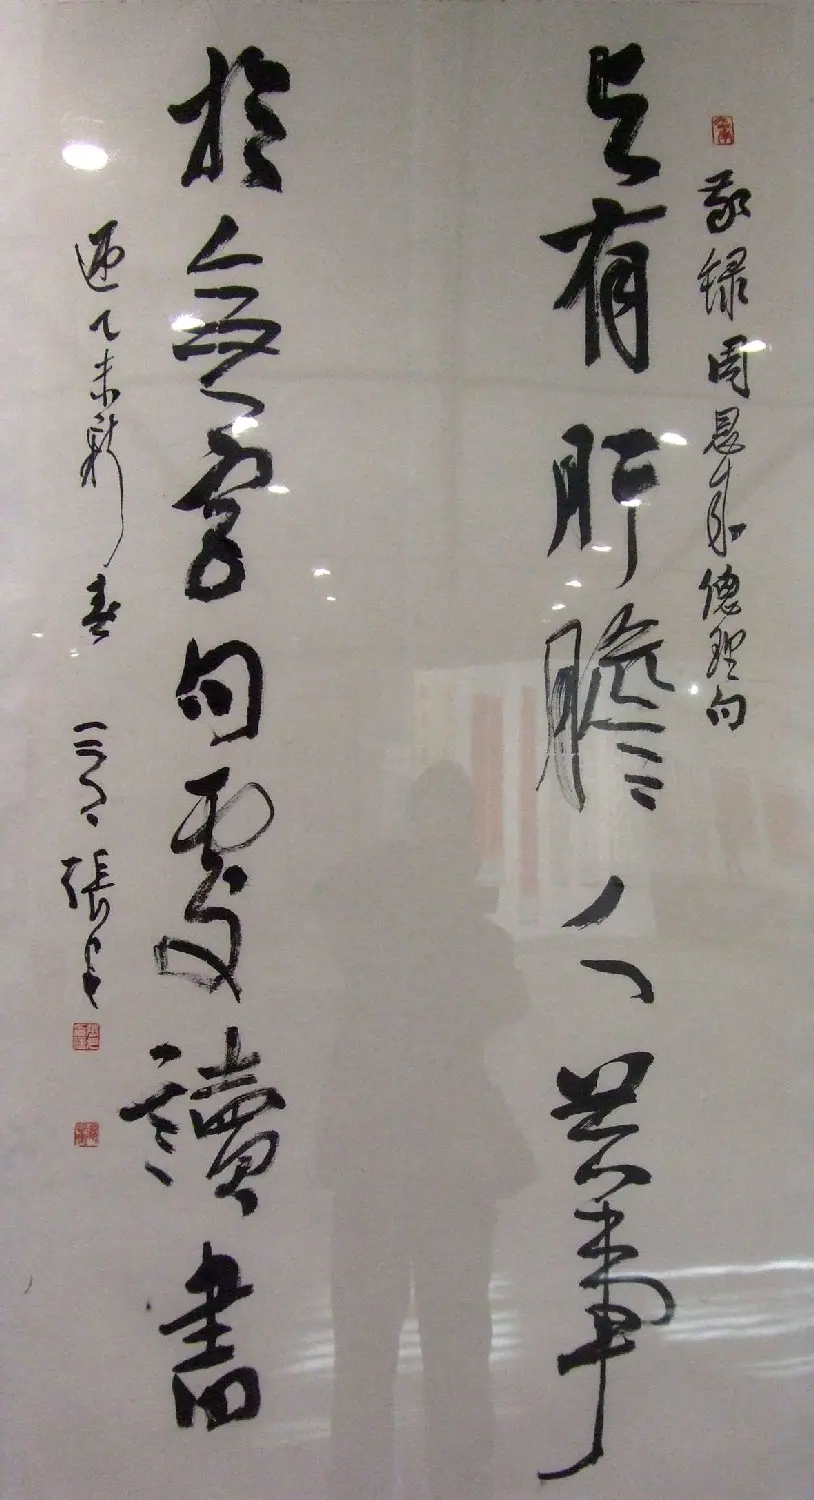 敬録周恩来總理句
与有肝膽人共事
於無字句處讀書
迎乙未新春
張